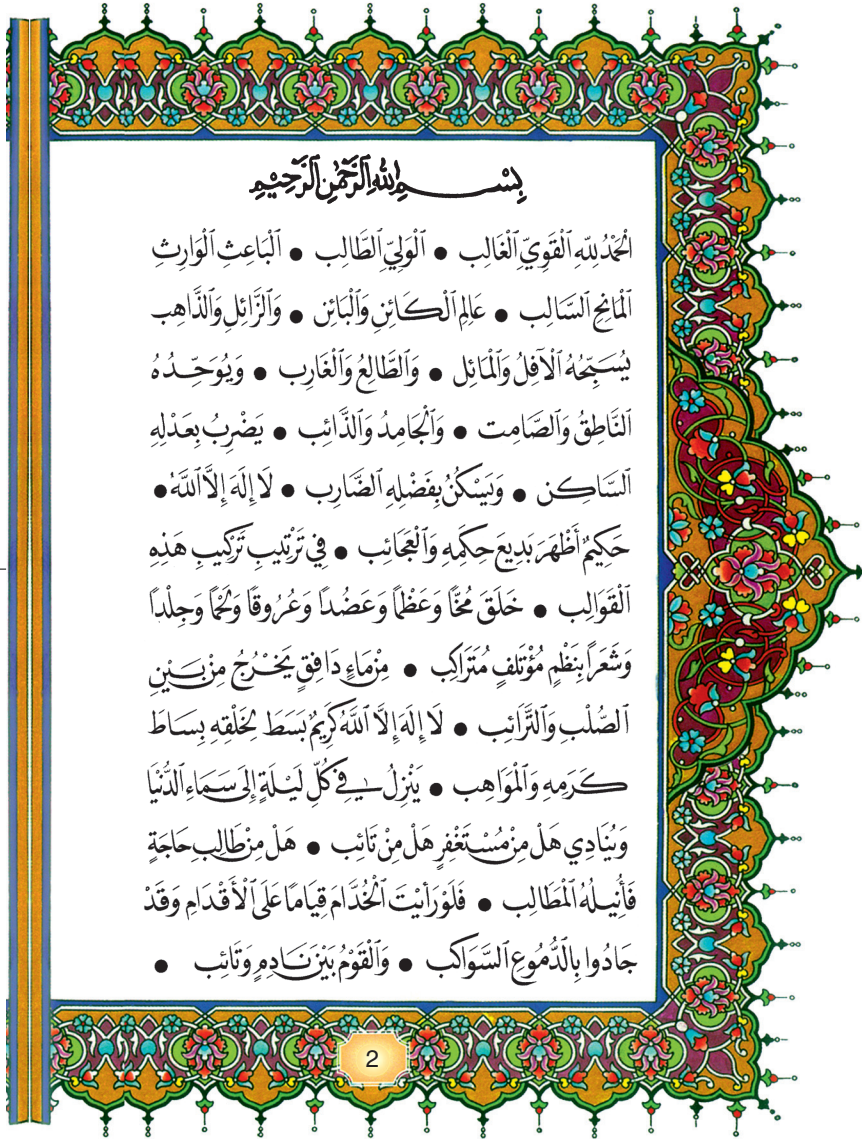 بِسْمِ ٱللّٰهِ ٱلرَّحْمٰنِ ٱلرَّحِيْمِ
اَلْحَمْدُ لِلّٰهِ ٱلْقَوِيِّ ٱلْغَالِب ● ٱلْوَلِيِّ ٱلطَّالِب ● ٱلْبَاعِثِ ٱلْوَارِثِ
ٱلْمَانِحِ ٱلسَّالِب ● عَالِمِ ٱلْكَائِنِ وَٱلْبَائِنِ ● وَٱلزَّائِلِ وَٱلذَّاهِب
يُسَبِّحُهُ ٱلْآفِلُ وَٱلْمَائِل ● وَٱلطَّالِعُ وَٱلْغَارِب ● وَيُوَحِّدُهُ
ٱلنَّاطِقُ وَٱلصَّامِت ● وَٱلْجَامِدُ وَٱلذَّائِب ● يَضْرِبُ بِعَدْلِهِ
ٱلسَّاكِن ● وَيَسْكُنُ بِفَضْلِهِ ٱلضَّارِب ● لَا إِلَهَ إِلَّا ٱللَّهُ ●
حَكِيمٌ أَظْهَرَ بَدِيعَ حِكَمِهِ وَٱلْعَجَائِب ● فِي تَرْتِيبِ تَرْكِيبِ هَذِهِ
ٱلْقَوَالِب ● خَلَقَ مُخًّا وَعَظْمًا وَعَضُدًا وَعُرُوقًا وَلَحْمًا وَجِلْدًا
وَشَعَرًا بِنَظْمٍ مُؤْتَلِفٍ مُتَرَاكِب ● مِنْ مَاءٍ دَافِقٍ يَخْرُجُ مِنْ بَيْنِ
ٱلصُّلْبِ وَٱلتَّرَائِب ● لَا إِلَهَ إِلَّا ٱللَّهُ كَرِيمٌ بَسَطَ لِخَلْقِهِ بِسَاطَ
كَرَمِهِ وَٱلْمَوَاهِب ● يَنْزِلُ فِي كُلِّ لَيْلَةٍ إِلَى سَمَاءِ ٱلدُّنْيَا
وَيُنَادِي هَلْ مِنْ مُسْتَغْفِرٍ هَلْ مِنْ تَائِب ● هَلْ مِنْ طَالِبِ حَاجَةٍ
فَأُنِيلُهُ ٱلْمَطَالِب ● فَلَوْ رَأَيْتَ ٱلْخُدَّامَ قِيَامًا عَلَى ٱلْأَقْدَامِ وَقَدْ
جَادُوا بِالدُّمُوعِ ٱلسَّوَاكِب ● وَٱلْقَوْمُ بَيْنَ نَادِمٍ وَتَائِب ●
2